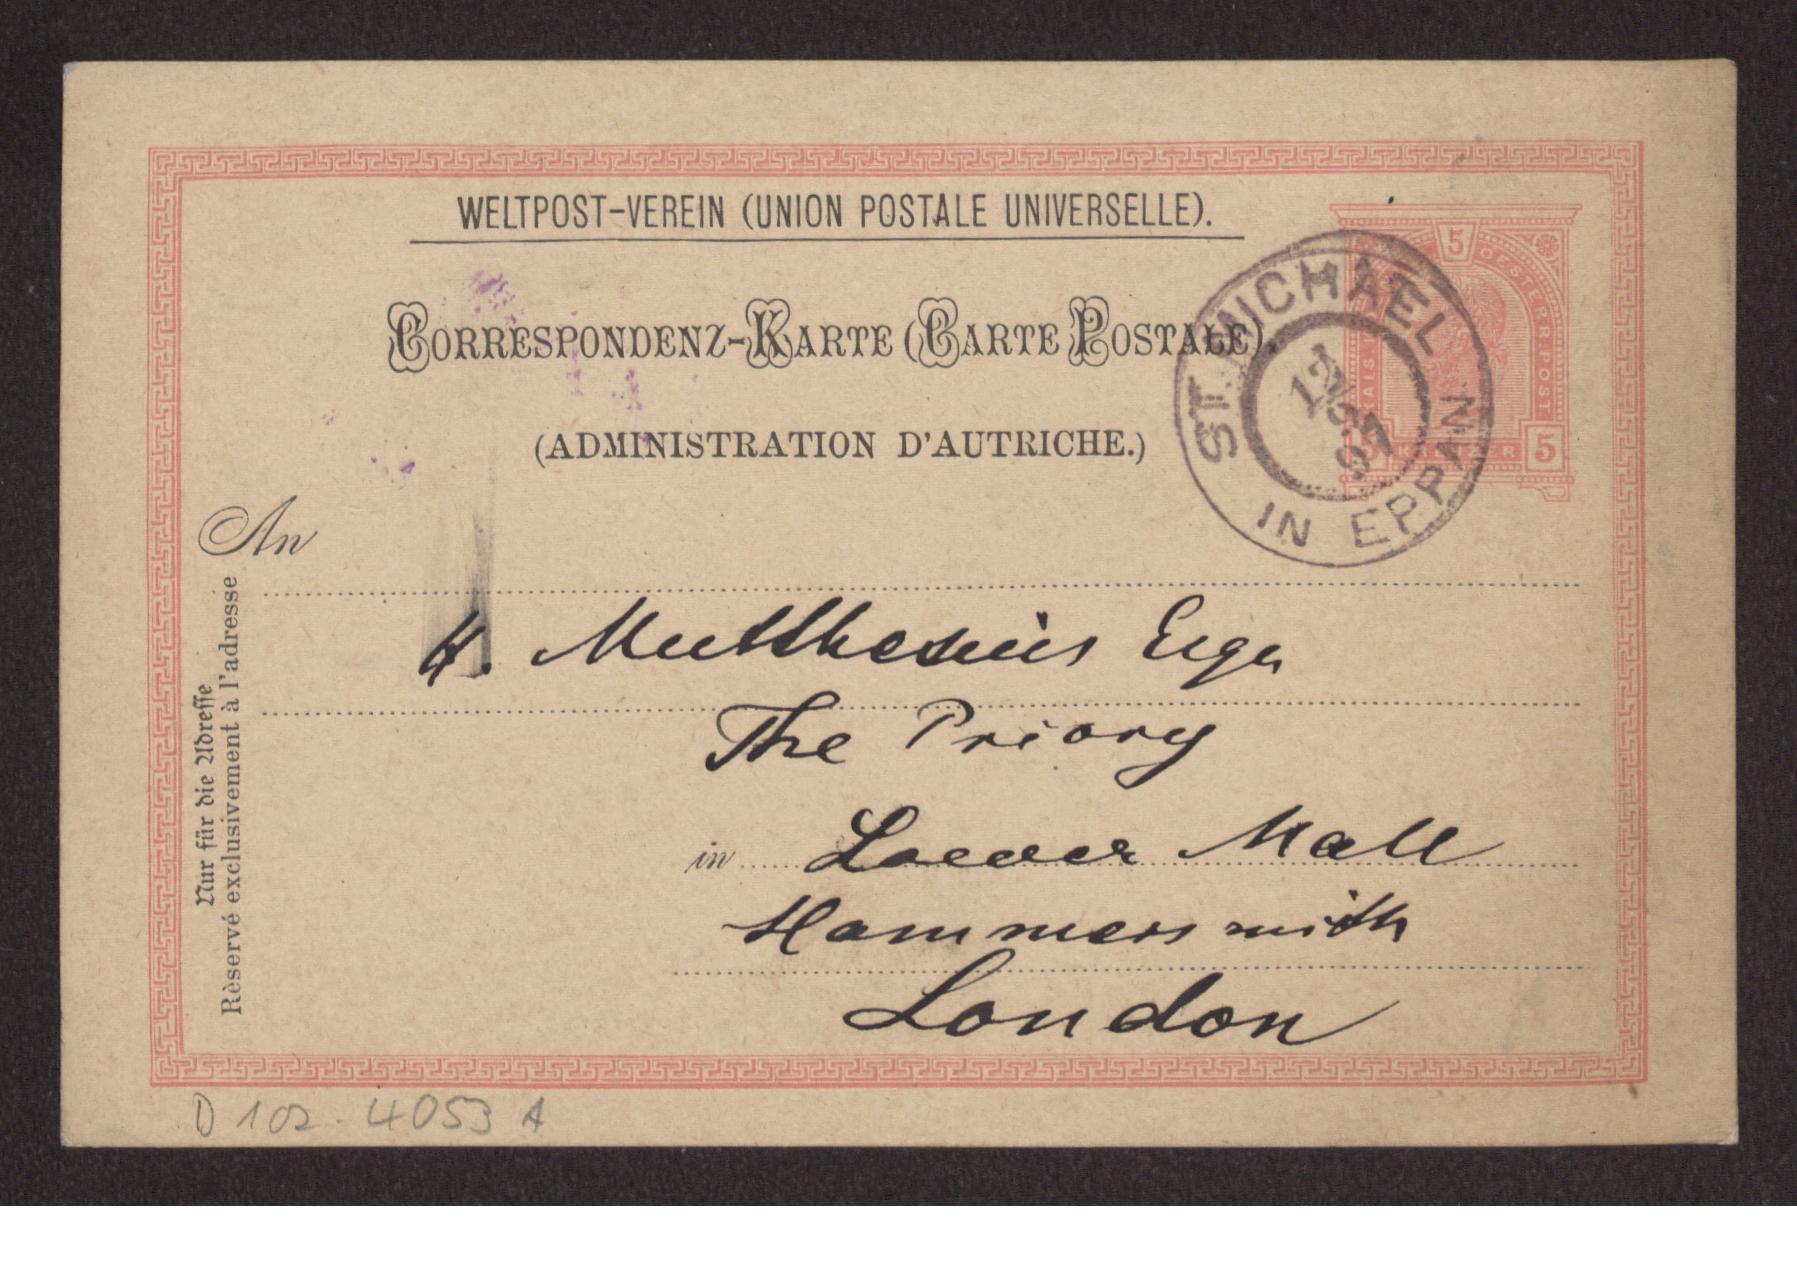 WELTPOST-VEREIN (UNION POSTALE UNIVERSELLE).
CORRESPONDENZ-KARTE (CARTE POSTALE).
(ADMINISTRATION D'AUTRICHE.)
5
OESTERR. POST
5 KREUZER 5
ST. MICHAEL
IN EPPAN
97
An
Nur für die Adresse
Rèservé exclusivement à l'adresse
H. Mutthesius Esqu
The Priory
in Loewer Mall
Hammersmith
London
D 102-4053 A